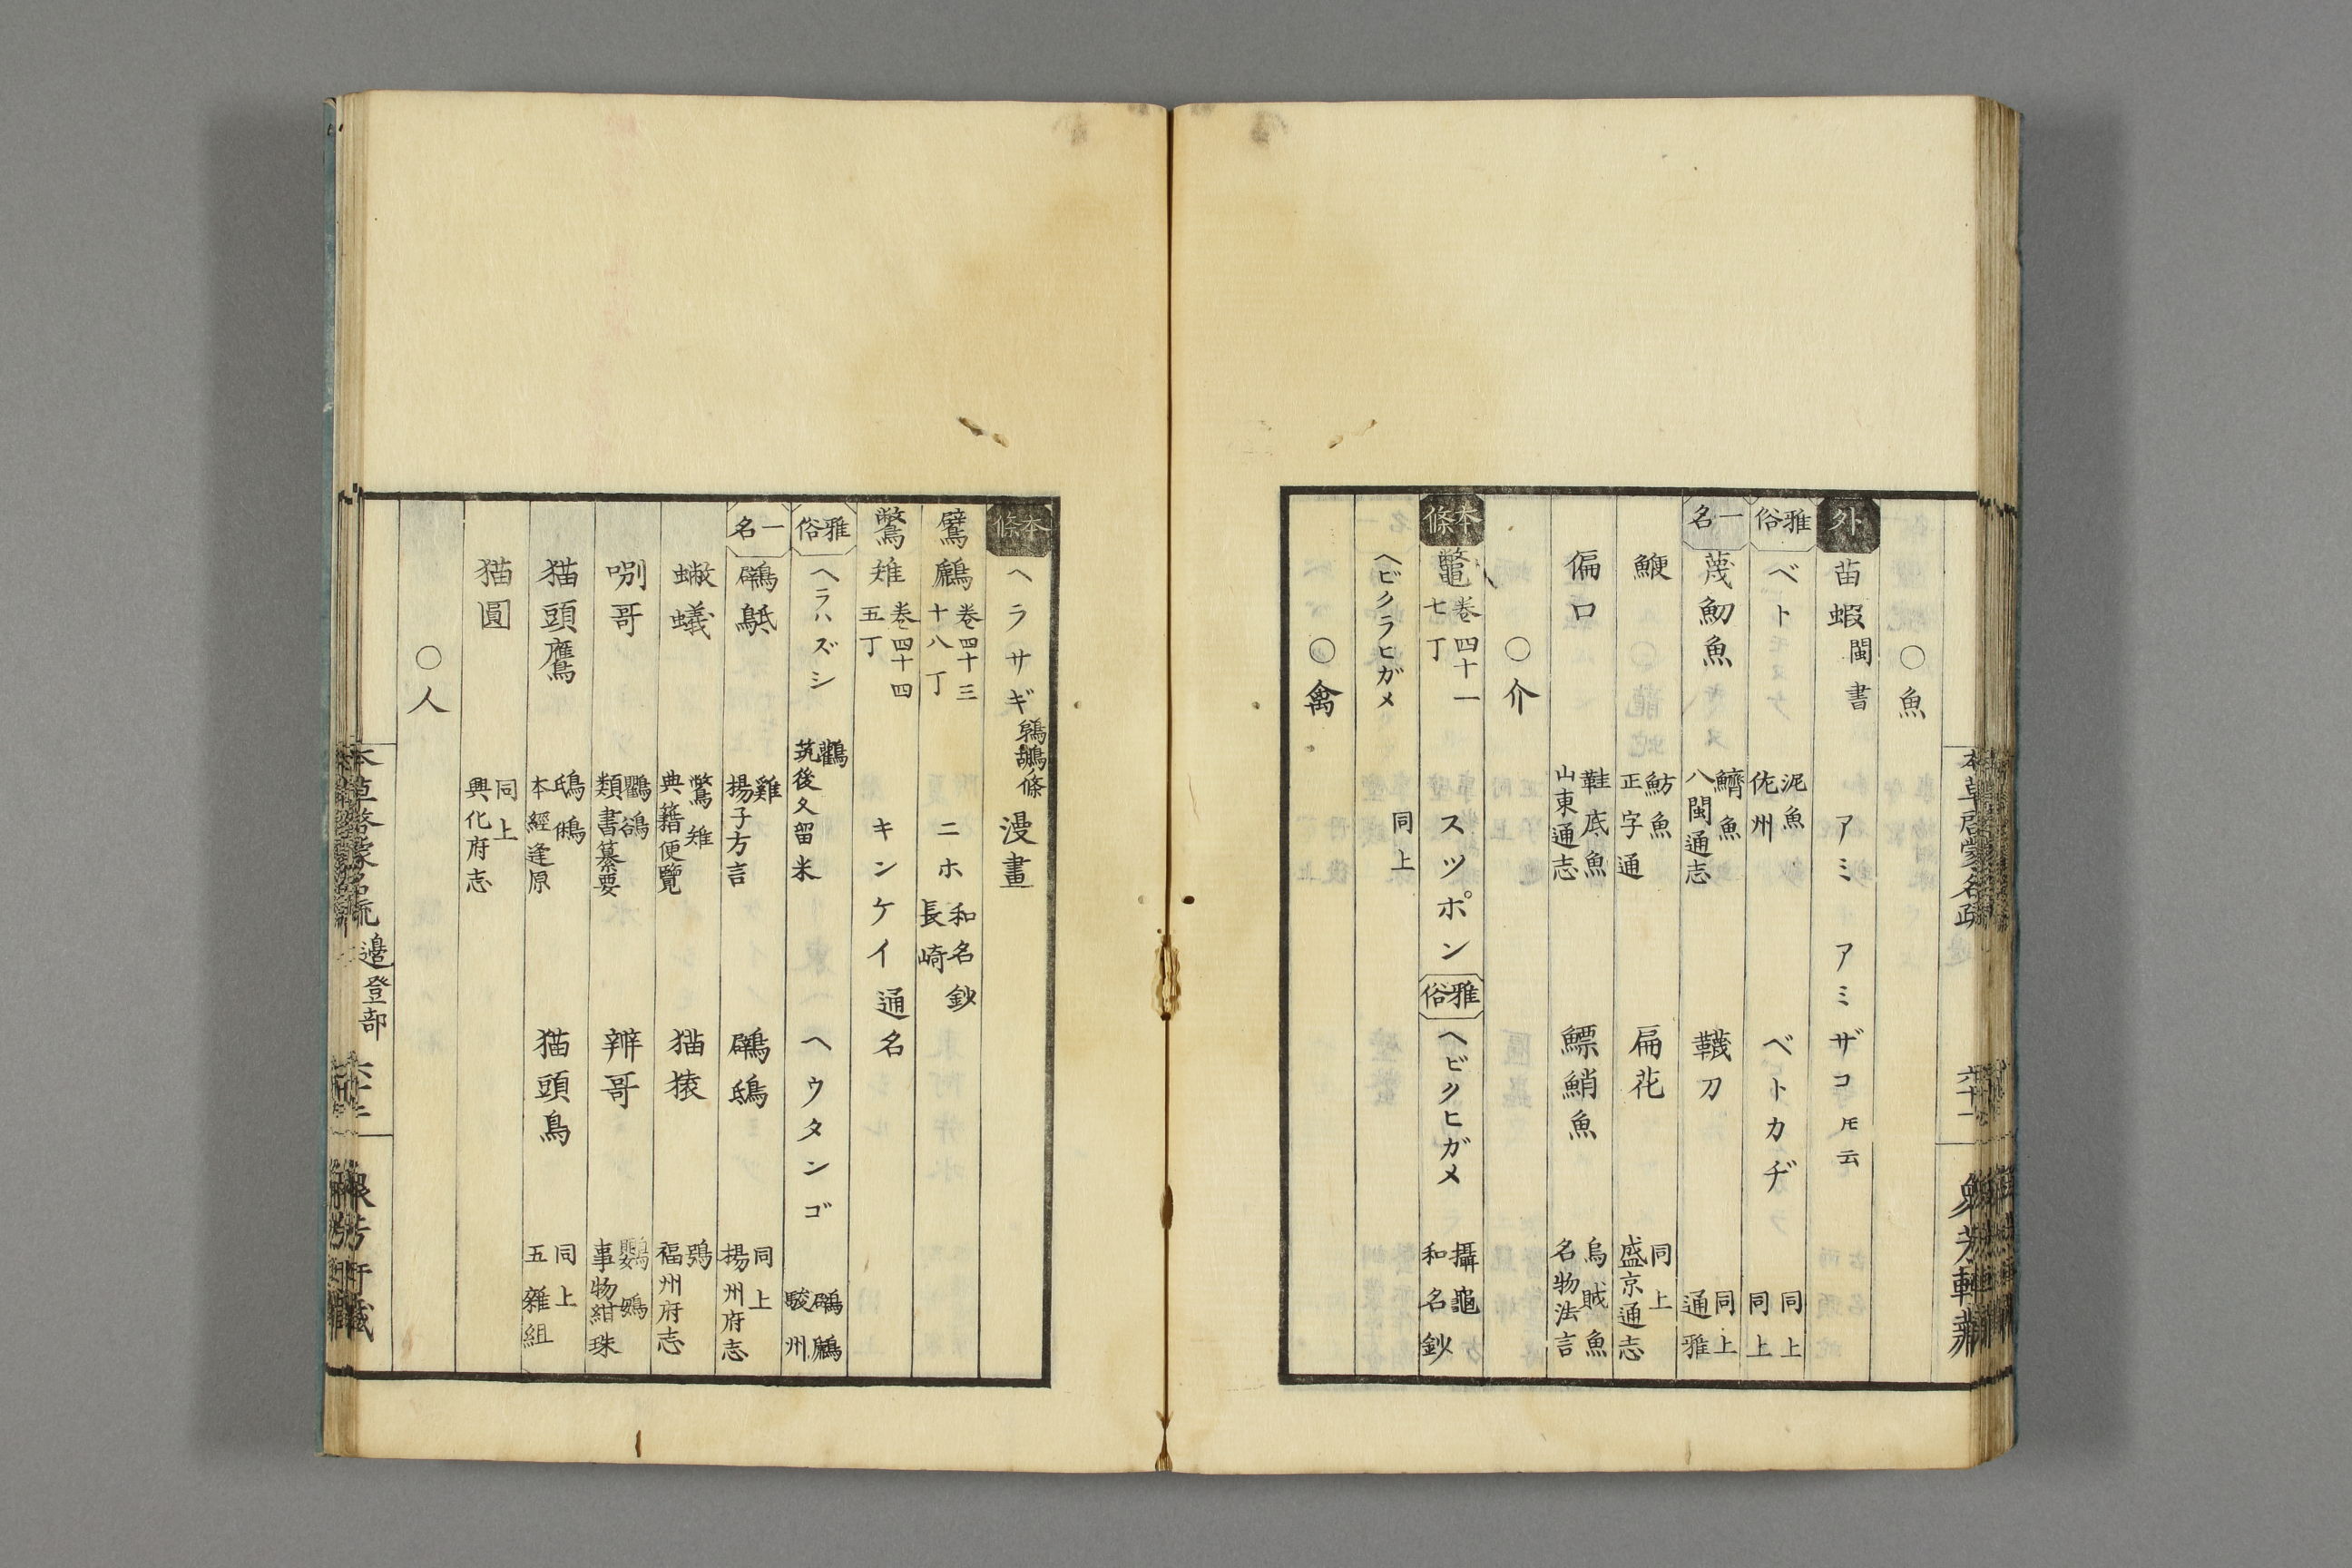 本草啓蒙名疏
六十一
衆芳軒蔵
○魚
外 苗蝦 閩書 アミ アミザコ 𪜈云
雅俗 ベト 泥魚 佐州 ベトカヂ 同上 同上
一名 䰾魛魚 鱭魚 八閩通志 韈刀 同上 通雅
鯾 魴魚 正字通 扁花 同上 盛京通志
偏口 鞋底魚 山東通志 鰾鮹魚 烏賊魚 名物法言
○介
本條 鼈 巻四十一 七丁 スツポン 雅俗 ヘビクヒガメ 攝龜 和名鈔
ヘビクラヒガメ 同上
○禽
本條 ヘラサギ 鵜鶘條 漫畫
鷿鷉 巻四十三 十八丁 ニホ 和名鈔 長崎
鷩雉 巻四十四 五丁 キンケイ 通名
雅俗 ヘラハズシ 鸛 筑後久留米 ヘウタンゴ 鸊鷉 駿州
一名 鸊䳄 雞 揚子方言 鸊鴟 同上 揚州府志
蟞蟻 鷩雉 典籍便覧 猫猿 鴞 福州府志
唎哥 鸜鵒 類書纂要 辨哥 鸚䳇 事物紺珠
猫頭鷹 鴟鵂 本經逢原 猫頭鳥 同上 五雜組
猫圓 同上 興化府志
○人
邉登部